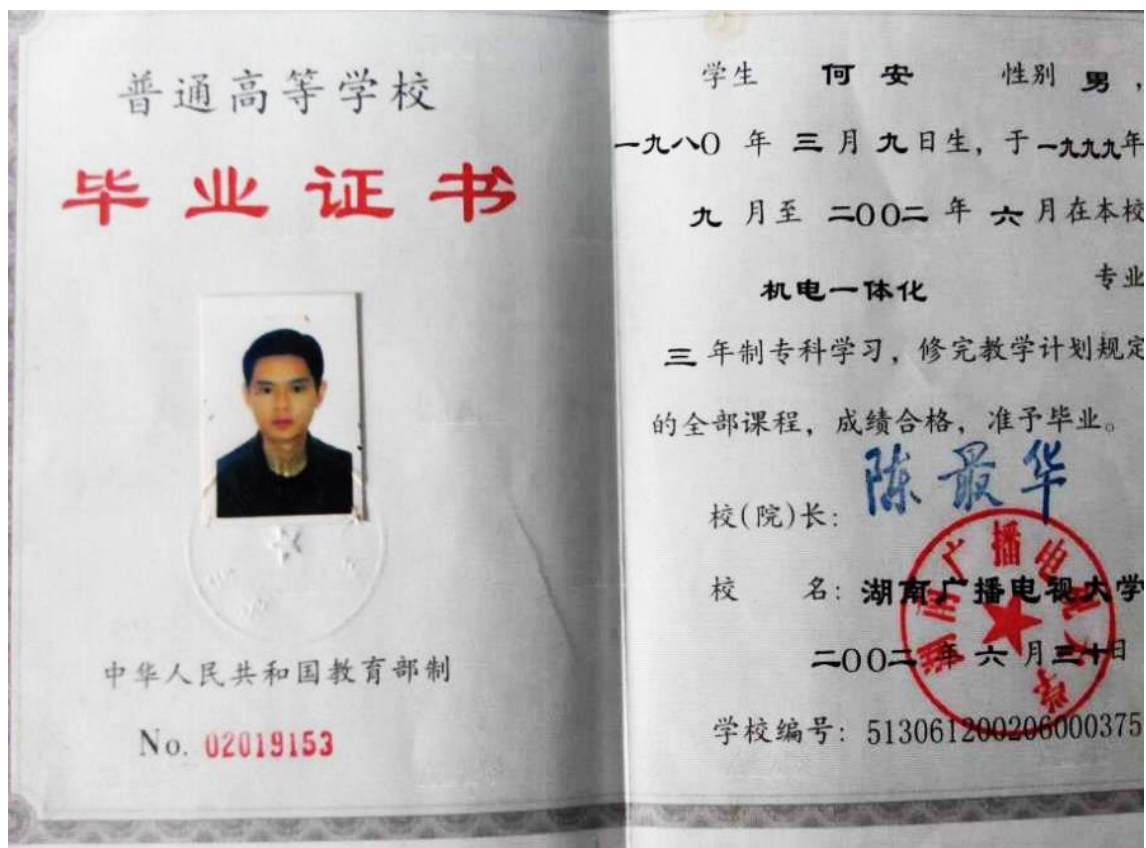 普通高等学校
毕业证书
中华人民共和国教育部制
No. 02019153
学生 何安 性别 男,
一九八〇年 三月 九日生, 于一九九九年
九月至 二〇〇二年 六月在本校
机电一体化 专业
三年制专科学习, 修完教学计划规定
的全部课程, 成绩合格, 准予毕业。
校(院)长: 陈最华
校 名: 湖南广播电视大学
二〇〇二年六月三十日
学校编号: 513061200206000375
湖南广播电视大学